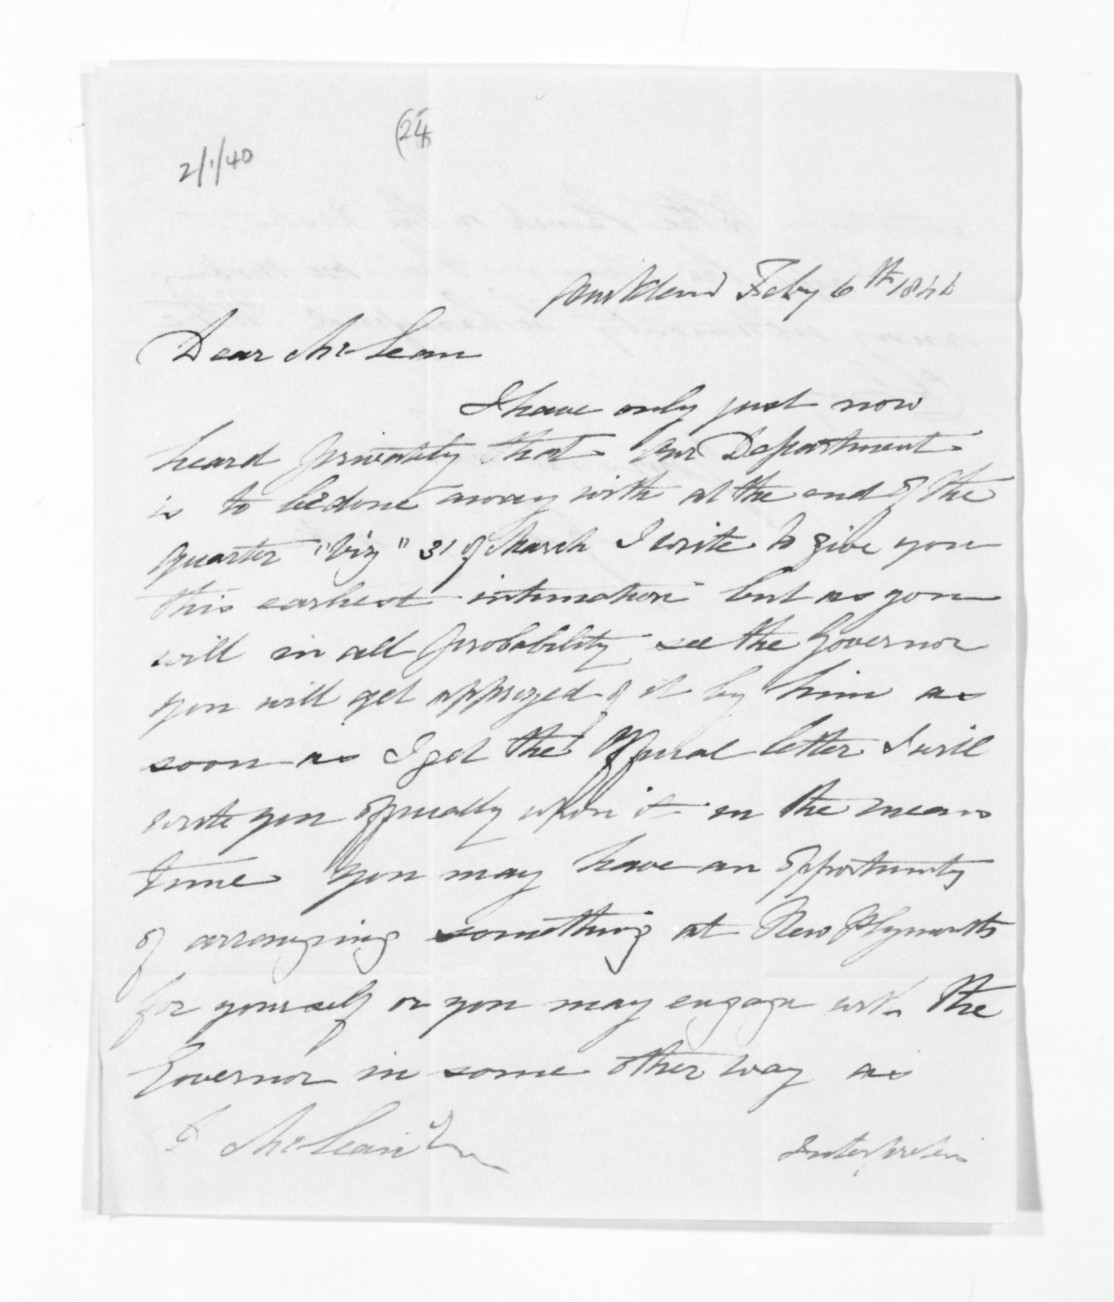 2/1/40
(24)
Auckland Feby 6th 1846
Dear McLean
I have only just now
heard privately that our Department
is to be done away with at the end of the
quarter "Viz" 31 of March I write to give you
this earliest intimation but as you
will in all probability see the Governor
you will get apprized of it by him as
soon as I get the Official letter I will
write you officially upon it in the mean
time you may have an opportunity
of arranging something at New Plymouth
for yourself or you may engage with the
Governor in some other way as
D McLean Esq
Interpreter